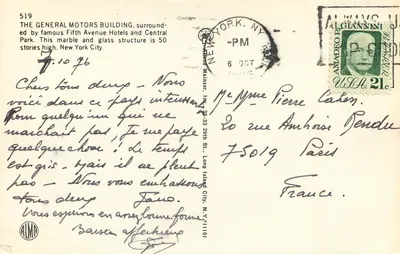 519
THE GENERAL MOTORS BUILDING, surround-
ed by famous Fifth Avenue Hotels and Central
Park. This marble and glass structure is 50
stories high. New York City.
7.10.76
Chers tous deux - Nous
voici dans ce pays intéressant
Pour quelqu'un qui ne
marchait pas, je me paye
quelque chose! Le temps
est gris. Mais il ne pleut
pas - Nous vous embrassons
tous deux
Vous espérons en assez bonne forme.
Baisers affectueux
ALMA
Manager, Inc., 20th St., Long Island City, N.Y. 11101
NEW YORK, N.Y.
-PM
6 OCT
ALWAYS U
ZIP CODE
AMADEO P. GIANNINI
USA 21c
M. Mme Pierre Cahen.
20 rue Ambroise Rendu
75019 Paris
France.